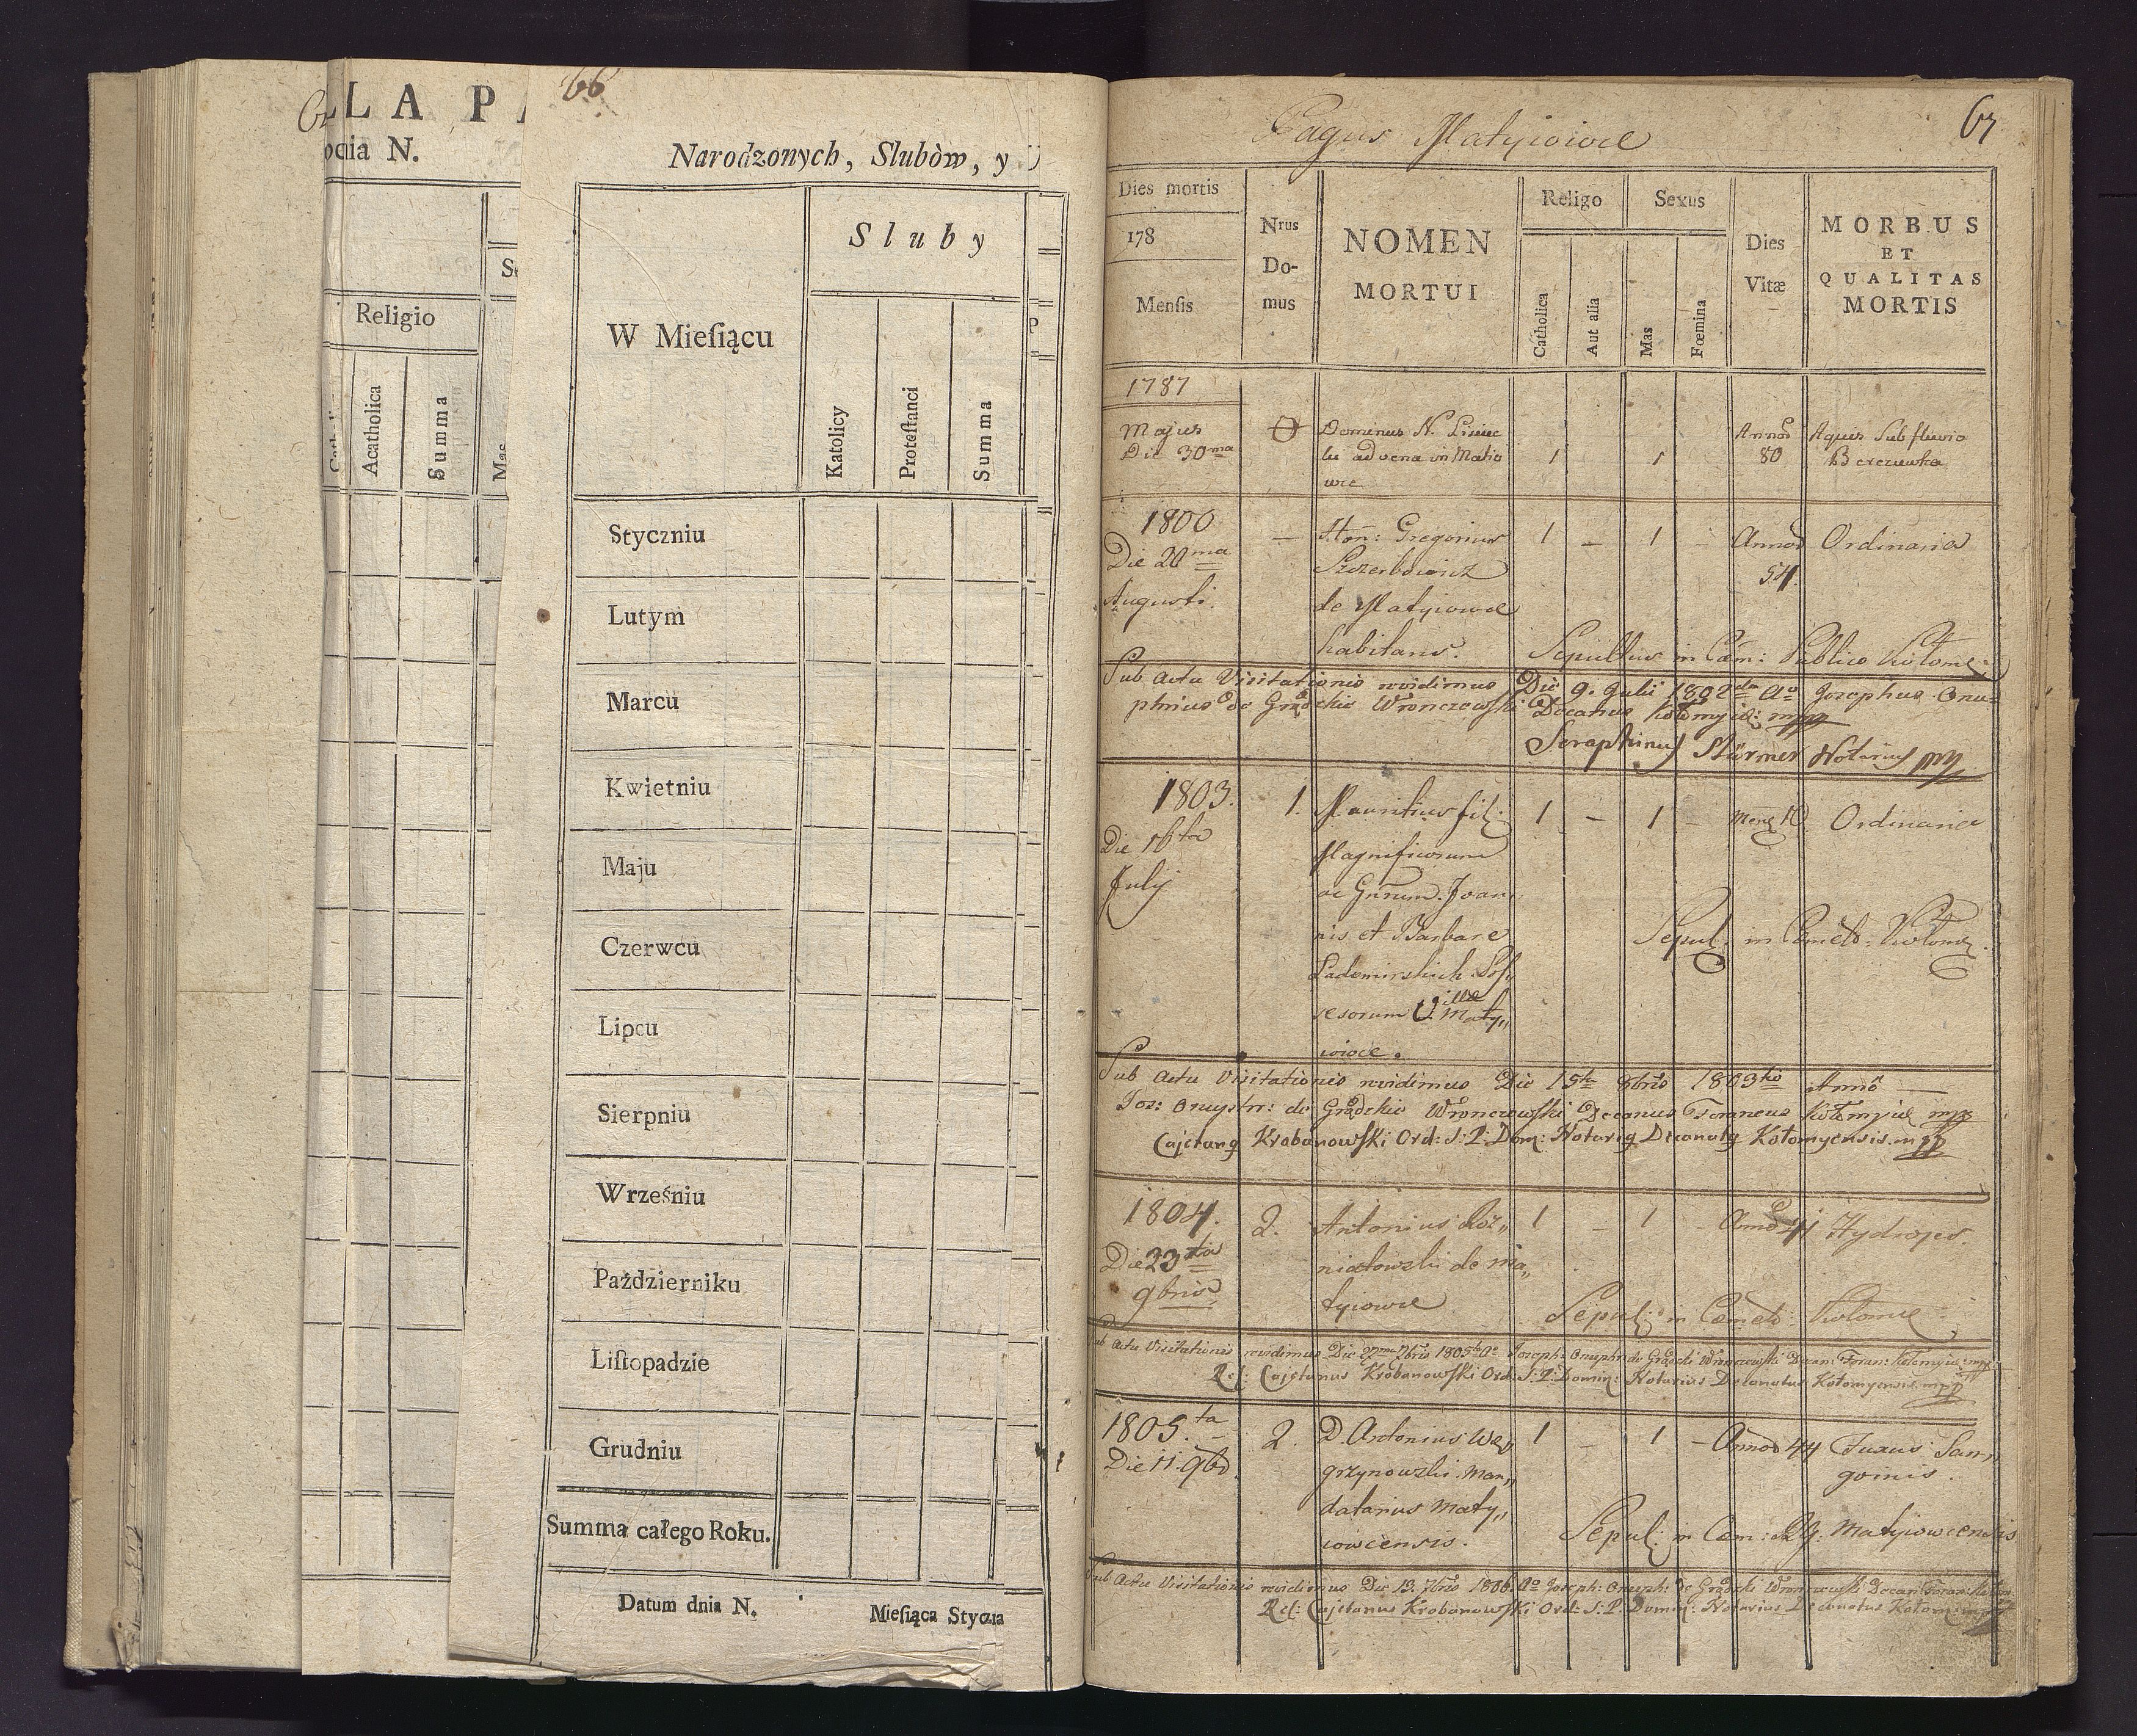 66
LLA P
ocia N.
Religio
Acatholica
Summa
Mas
Narodzonych, Slubòw, y
W Mieſiącu
Sluby
Katolicy
Proteſtanci
Summa
Styczniu
Lutym
Marcu
Kwietniu
Maju
Czerwcu
Lipcu
Sierpniu
Wrześniu
Październiku
Liſtopadzie
Grudniu
Summa całego Roku.
Datum dnia N.
Mieſiąca Stycznia
67
Pagus Matyiowce
Dies mortis
178
Menſis
Nrus
Do-
mus
NOMEN
MORTUI
Religo
Catholica
Aut alia
Sexus
Mas
Fœmina
Dies
Vitæ
MORBUS
ET
QUALITAS
MORTIS
1787
Majus
Die 30ma
Dominus N.
advena in Matio
wce
1
1
Annos
80
Aquis Sub fluvio
Berezuwka
1800
Die 20ma
Augusti.
—
Gregorius
Szczerbowicz
de Matyiowce
habitans.
1 – 1 –
Annos
54.
Ordinaria
Sepultus in Cæm: Publico Kołom:
Sub Actu Visitationis vvidimus Die 9. Julii 1802do Ao Josephus Onu-
phrius de Grądzkie Wronczewſki Decanus Kołomyię: mpp
Seraphinus Stürmer Notarius mpp
1803.
Die 16ta
July
1.
Mauritius fil:
Magnificorum
ac Gnrum. Joan,
nis et Barbare
Lademirskich Poſſ
seſorum Villæ Maty,,
iowce.
1 – 1 –
Mens 10.
Ordinaria
Sepul: in Cæmet: Kołom.
Sub Actu Visitationis vvidimus Die 15ta 8bris 1803tio Anno
Jos: Onuphr: de Grądzkie Wronczewſki Decanus Foraneus Kołomyię mpp
Cajetanꝯ Krobanowſki Ord: S: P: Dom: Notariꝯ Decanatꝯ Kołomyensis. mpp
1804.
Die 23tia
9bris
2.
Antonius Roz,,
niatowski de Ma,,
tyiowce
1 – 1 –
Anno 41
Hydrojes.
Sepul: in Cæmet: Kołomie
Sub Actu Visitationis vvidimus Die 27ma 7bris 1805to Ao Joseph: Onuphr: de Grądzki Wronczewſki Decan: Foran: Kołomyię: mpp
Rel: Cajetanus Krobanowſki Ord: S: P: Domin: Notarius Decanatus Kołomyensis mpp
1805.ta
Die 11. 9br.
2.
D. Antonius We,,
grzynowski Man,,
datarius Maty,,
iowcensis.
1 – 1 –
Annos 44
Fuxus San,,
guinis.
Sepul: in Cæm: Matyiowcensis
Sub Actu Visitationis vvidimus Die 13. 7bris 1806. Ao Joseph: Onuph: de Grądzki Wronczewſki Decan: Foran:
Rel: Cajetanus Krobanowſki Ord: S: P. Domin: Notarius Decanatus Kołom: mpp